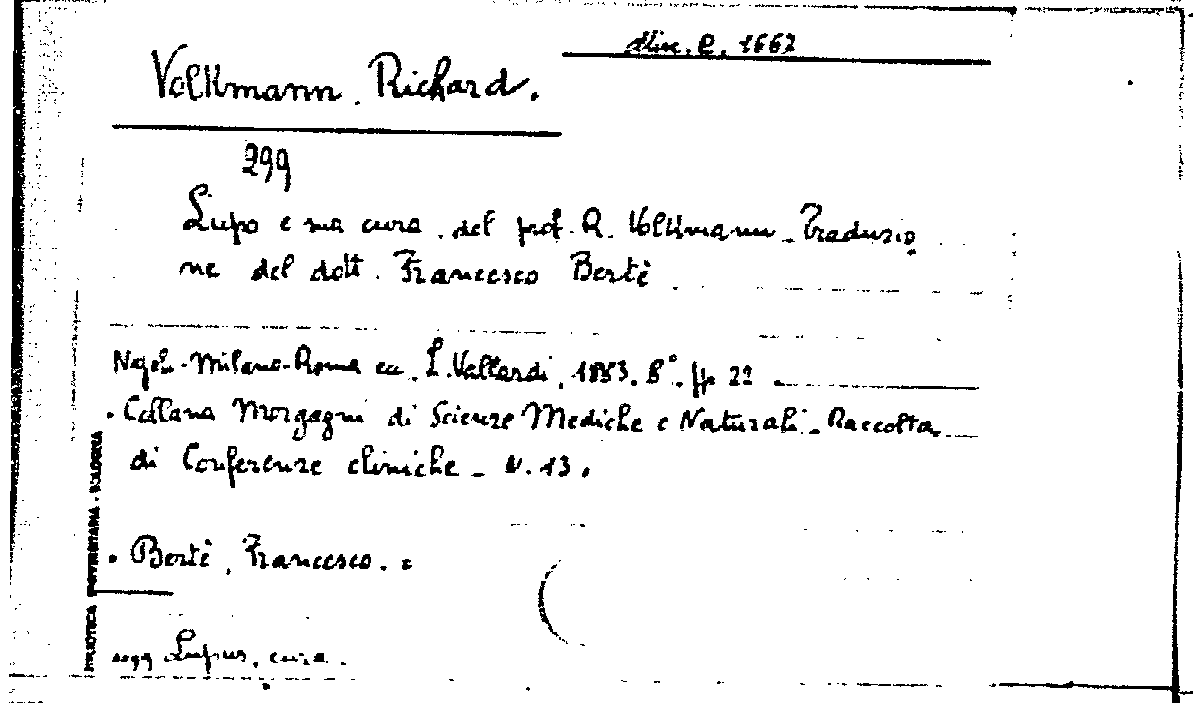 Misc. B. 1667
Volkmann, Richard.
299
Lupo e sua cura, del prof. R. Volkmann. Traduzio
ne del dott. Francesco Bertè
Napoli-Milano-Roma ecc. L. Vallardi, 1883. 8°. pp 22
. Collana Morgagni di Scienze Mediche e Naturali - Raccolta
di Conferenze cliniche - N. 13.
. Bertè, Francesco. =
sogg Lupus, cura.
BIBLIOTECA UNIVERSITARIA - BOLOGNA